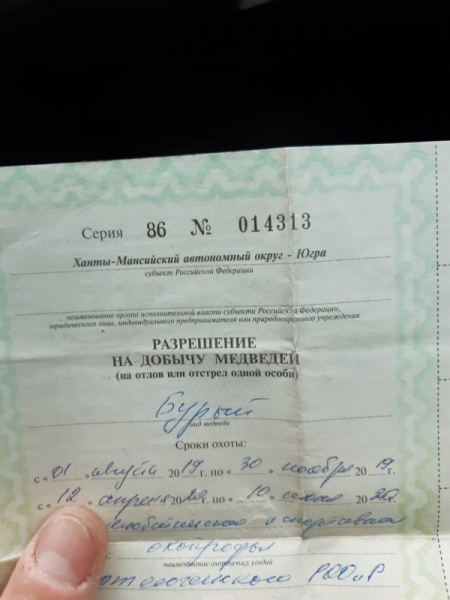 Серия 86 № 014313
Ханты-Мансийский автономный округ - Югра
субъект Российской Федерации
наименование органа исполнительной власти субъекта Российской Федерации,
юридического лица, индивидуального предпринимателя или природоохранного учреждения
РАЗРЕШЕНИЕ
НА ДОБЫЧУ МЕДВЕДЕЙ
(на отлов или отстрел одной особи)
Бурый
вид медведя
Сроки охоты:
с «01» августа 2019 г. по «30» ноября 2019 г.
с «12» апреля 2020 г. по «10» 2020 г.
и спортивная
наименование охотничьих угодий
РООиР